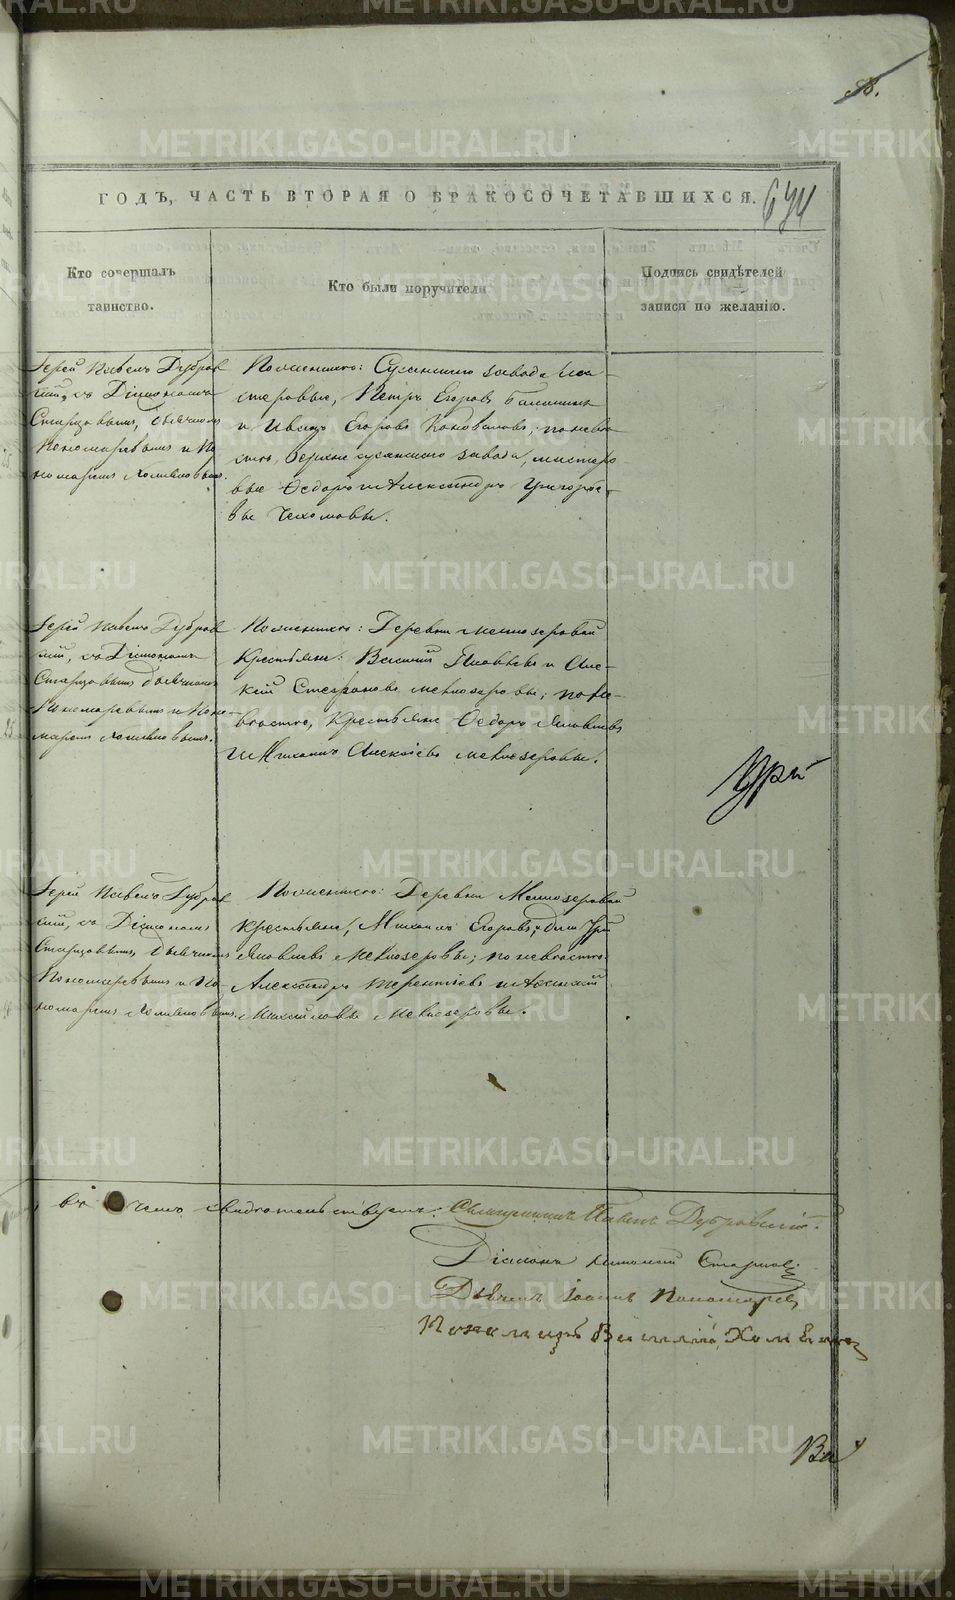 ГОДЪ, ЧАСТЬ ВТОРАЯ О БРАКОСОЧЕТАВШИХСЯ.
Кто совершалъ
таинство.
Кто были поручители.
Подпись свидѣтелей
записи по желанію.
Іерей Павелъ Дубров
скій, съ Діакономъ
Старцовымъ, дьячкомъ
Пономаревымъ и По
номаремъ Хомяковымъ.
По женихѣ: Сусанскаго завода мас
теровые, Петръ Егоровъ
и Иванъ Егоровъ Коноваловъ; по невѣ
стѣ, Верхне сусанскаго завода, мастеро
вые Ѳедоръ и Александръ Григорье
вы
Іерей Павелъ Дубров
скій, съ Діакономъ
Старцовымъ дьячкомъ
Пономаревымъ и Поно
маремъ Хомяковымъ.
По женихѣ: Деревни Мелкозеровой
Крестьяне: Василій Яковлевъ и Алек
сѣй Стефановъ Мелкозеровы; по не
вѣстѣ, Крестьяне Ѳедоръ Яковлевъ
и Михаилъ Алексѣевъ Мелкозеровы.
Іерей Павелъ Дубров
скій, съ Діакономъ
Старцовымъ, дьячкомъ
Пономаревымъ и По
номаремъ Хомяковымъ.
По женихѣ: Деревни Мелкозеровой
Крестьяне, Михаилъ Егоровъ,
Яковлевъ Мелкозеровы; по невѣстѣ:
Александръ Терентіевъ и
Михайловъ Мелкозеровы.
въ чемъ свидѣтельствуемъ: Священникъ Павелъ Дубровскій.
Діаконъ Старцовъ
Дьячекъ Іоаннъ Пономаревъ
Пономарь Василій Хомяковъ
METRIKI.GASO-URAL.RU